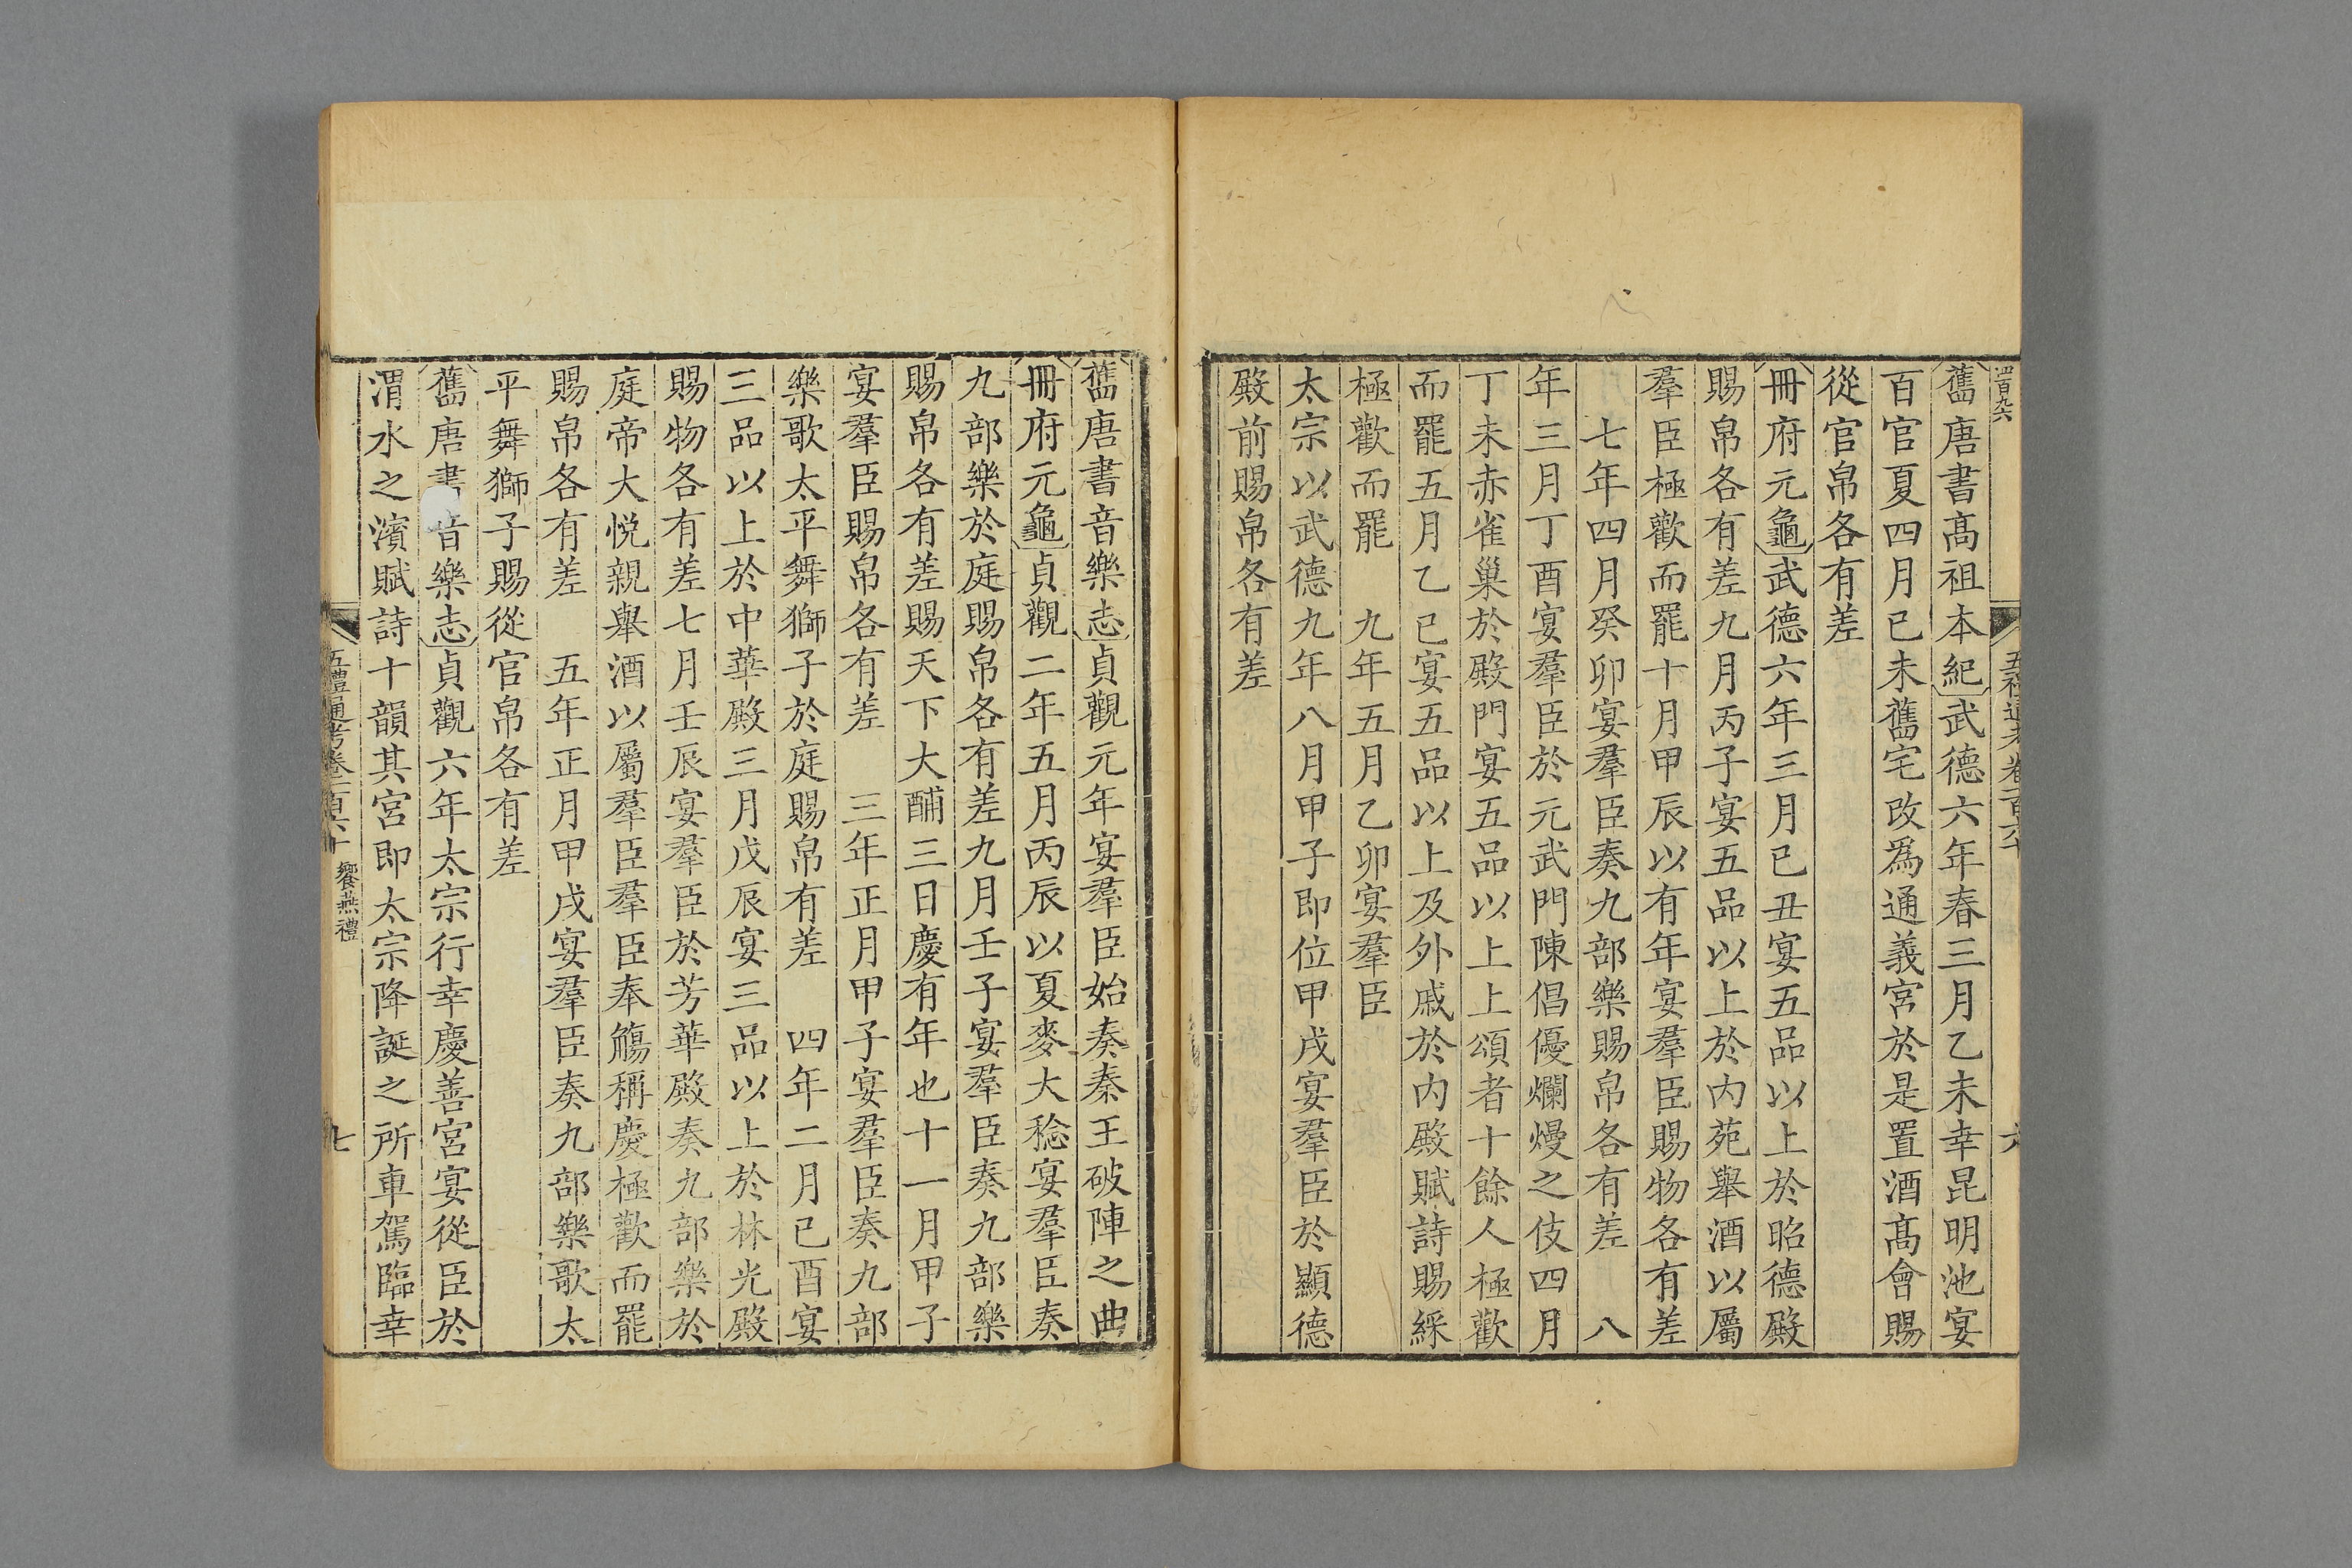 舊唐書髙祖本紀武德六年春三月乙未幸昆明池宴
百官夏四月已未舊宅改爲通義宮於是置酒髙會賜
從官帛各有差
冊府元龜武德六年三月已丑宴五品以上於昭德殿
賜帛各有差九月丙子宴五品以上於内苑舉酒以屬
羣臣極歡而罷十月甲辰以有年宴羣臣賜物各有差
七年四月癸卯宴羣臣奏九部樂賜帛各有差　八
年三月丁酉宴羣臣於元武門陳倡優爛熳之伎四月
丁未赤雀巢於殿門宴五品以上上頌者十餘人極歡
而罷五月乙巳宴五品以上及外戚於内殿賦詩賜綵
極歡而罷　九年五月乙卯宴羣臣
太宗以武德九年八月甲子即位甲戌宴羣臣於顯德
殿前賜帛各有差
舊唐書音樂志貞觀元年宴羣臣始奏秦王破陣之曲
冊府元龜貞觀二年五月丙辰以夏麥大稔宴羣臣奏
九部樂於庭賜帛各有差九月壬子宴羣臣奏九部樂
賜帛各有差賜天下大酺三日慶有年也十一月甲子
宴羣臣賜帛各有差　三年正月甲子宴羣臣奏九部
樂歌太平舞獅子於庭賜帛有差　四年二月已酉宴
三品以上於中華殿三月戊辰宴三品以上於林光殿
賜物各有差七月壬辰宴羣臣於芳華殿奏九部樂於
庭帝大悦親舉酒以屬羣臣羣臣奉觴稱慶極歡而罷
賜帛各有差　五年正月甲戌宴羣臣奏九部樂歌太
平舞獅子賜從官帛各有差
舊唐書音樂志貞觀六年太宗行幸慶善宮宴從臣於
渭水之濱賦詩十韻其宮即太宗降誕之所車駕臨幸
五禮通考卷一百六十　饗燕禮　七